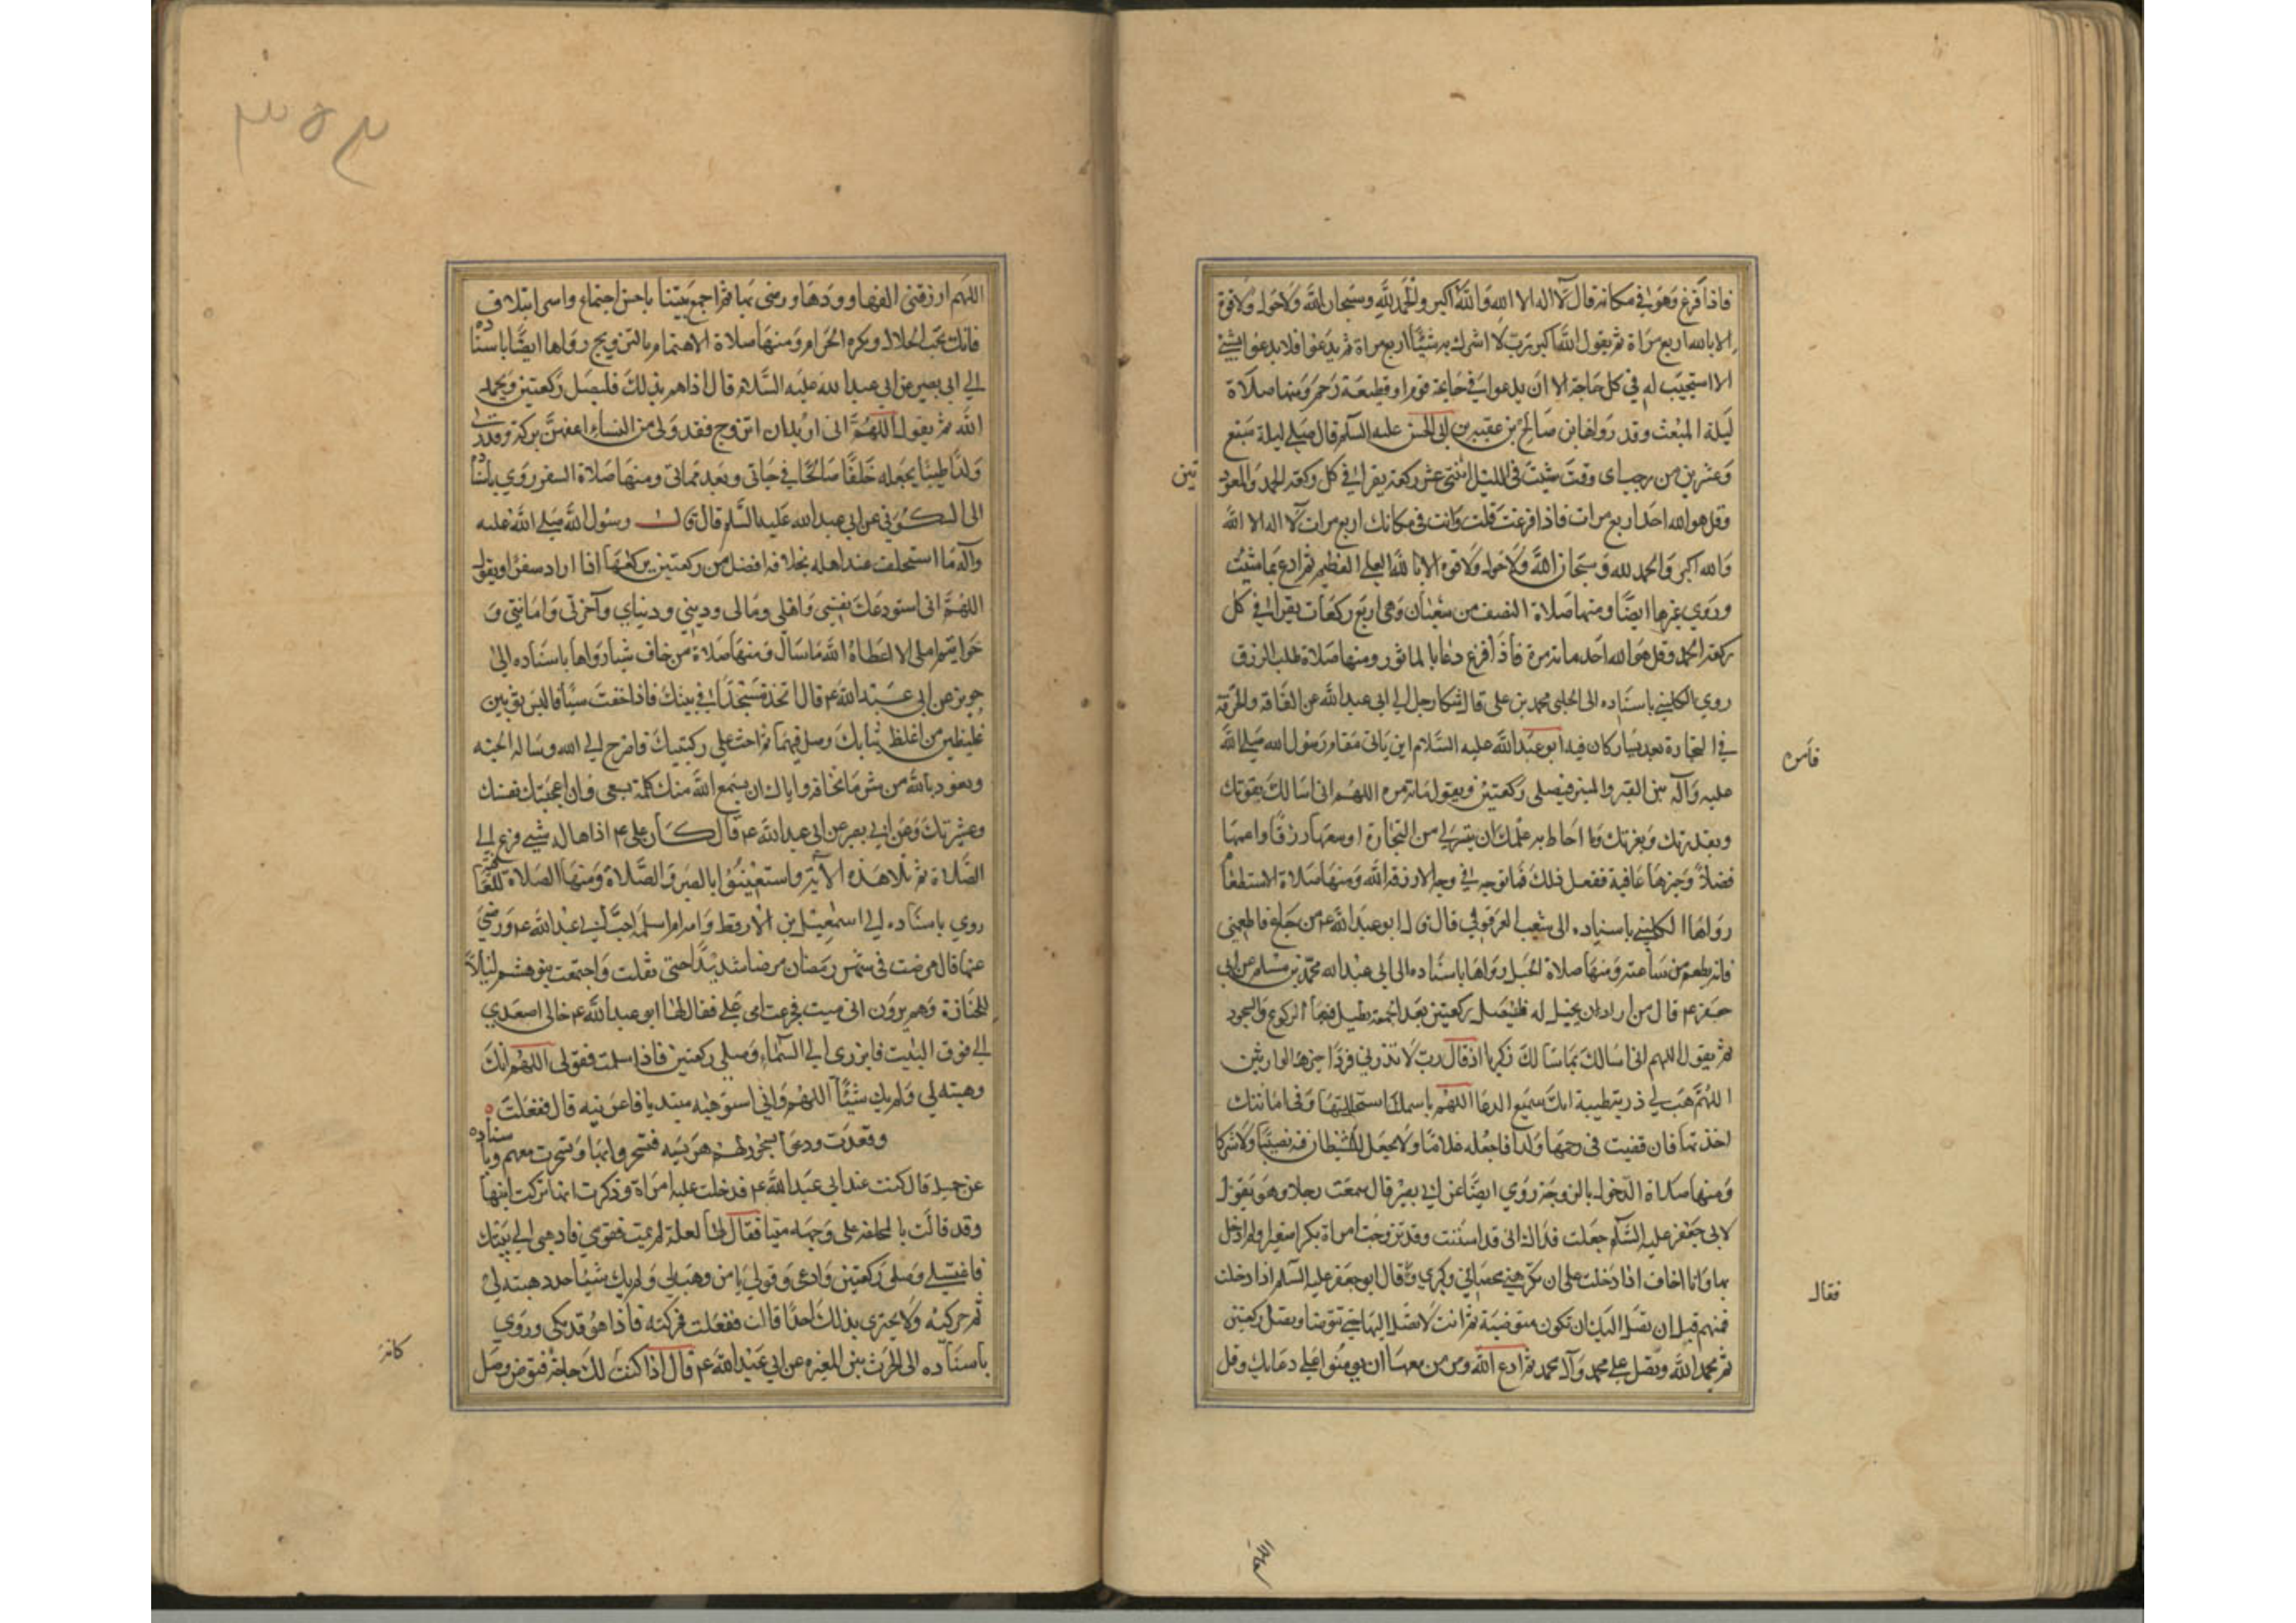 فاذا فرغ وهو في مكانه قال لا اله الا الله والله اكبر والحمد لله وسبحان الله ولا حول ولا قوة
الا بالله اربع مراة ثم يقول الله اكبر ربي لا اشرك به شيئا اربع مراة ثم يدعوا فلا يدعوا بشئ
الا استجيب له في كل حاجة الا ان يدعوا في جايحة قوم او قطيعة رحم ومنها صلاة
ليلة المبعث وقد رواها بن صالح بن عقبه بن ابى الحسن عليه السلم قال صل ليلة سبع
وعشرين من رجب اى وقت شئت فى الليل اثنتى عشر ركعة يقرا في كل ركعة الحمد والمعوذ
تين
وقل هو الله احد اربع مرات فاذا فرغت قلت وانت فى مكانك اربع مرات لا اله الا الله
والله اكبر والحمد لله وسبحان الله ولا حول ولا قوة الا بالله العلي العظيم ثم ادع بما شئت
وروي غيرها ايضا ومنها صلاة النصف من شعبان وهى اربع ركعات يقرا في كل
ركعة الحمد وقل هو الله احد مائة مرة فاذا فرغ دعا بالماثور ومنها صلاة طلب الرزق
روي الكليني باسناده الى الحلبى محمد بن على قال شكا رجل الي ابى عبد الله عن الفاقة والحرقة
في التجارة بعد يسار كان فيه ابو عبد الله عليه السلام ان ياتى مقام رسول الله صلى الله
فامره
عليه وآله بين القبر والمنبر فيصلى ركعتين ويقول مائة مرة اللهم انى اسالك بقوتك
وبقدرتك وبعزتك وما احاط به علمك ان ييسر لي من التجارة اوسعها رزقا واعمها
فضلا وخيرها عافية ففعل ذلك فما توجه في وجه الا رزقه الله ومنها صلاة الاستطعام
رواها الكليني باسناده الى شعيب العرقوفي قال قال ابو عبد الله ع من جاع فاطعمنى
فانه يطعم من ساعته ومنها صلاة الحبل رواها باسناده الى ابى عبد الله محمد بن مسلم عن ابي
جعفر ع قال من اراد ان يحبل له فليصل ركعتين بعد الجمعة يطيل فيهما الركوع والسجود
ثم يقول اللهم انى اسالك بما سالك زكريا اذ قال رب لا تذرنى فردا وانت خير الوارثين
اللهم هب لي ذرية طيبة انك سميع الدعا اللهم باسمك استحللتها وفى امانتك
اخذتها فان قضيت فى رحمها ولدا فاجعله غلاما ولا تجعل للشيطان فيه نصيبا ولا شركا
ومنها صلاة الدخول بالزوجة روي ايضا عن ابي بصير قال سمعت رجلا وهو يقول
لابى جعفر عليه السلم جعلت فداك انى قد اسننت وقد تزوجت امراة بكرا صغيرا ولم ادخل
بها وانا اخاف اذا دخلت على ان تكرهنى بخضابي وكبري قال ابو جعفر عليه السلم اذا دخلت
فقال
فمرهم قبل ان تصل اليك ان تكون متوضية ثم انت لا تصل اليها حتى تتوضا وتصل ركعتين
ثم يحمد الله وتصل على محمد وآل محمد ثم ادع الله ومر من معها ان يومنوا على دعائك وقل
اللهم
٣٥٣
اللهم ارزقنى الفها وودها ورضى بها ثم اجمع بيننا باحسن اجتماع واسر ايتلاف
فانك تحب الحلال ويكره الحرام ومنها صلاة الاهتمام بالتزويج رواها ايضا باسناده
الي ابى بصير عن ابي عبد الله عليه السلام قال اذا هم بذلك فليصل ركعتين ويحمد
الله ثم يقول اللهم انى اريد ان اتزوج فقدر لى من النساء اعفهن بركة وقدر لي
ولدا طيبا يجعله خلفا صالحا في حياتى وبعد مماتى ومنها صلاة السفر روي باسناده
الى السكونى عن ابى عبد الله عليه السلم قال قال رسول الله صلى الله عليه
وآله ما استخلف عند اهله بخلافه افضل من ركعتين يركعها اذا اراد سفرا ويقول
اللهم انى استودعك نفسى واهلى ومالى ودينى ودنياي وآخرتى وامانتي و
خواتيم عملى الا اعطاه الله ما سال ومنها صلاة من خاف شيا رواها باسناده الى
حريز عن ابى عبد الله ع قال اتخذ مسجدا في بيتك فاذا خفت شيا فالبس ثوبين
غليظين من اغلظ ثيابك وصل فيهما ثم احث على ركبتيك فاصرخ الى الله وساله الجنه
وتعوذ بالله من شر ما تخافه واياك ان يسمع الله منك كلمة بغى وان اعجبتك نفسك
وعشيرتك وعن ابي بصير عن ابى عبد الله ع قال كان على ع اذا هاله شي فزع الى
الصلاة ثم تلا هذه الآية واستعينوا بالصبر والصلاة ومنها الصلاة
روي باسناده الي اسمعيل بن الارقط وامه ام سلمة اخت ابي عبد الله ع ورضي
عنها قال مرضت فى شهر رمضان مرضا شديدا حتى ثقلت واجتمعت بنو هشم ليلا
للجنازة وهم يرون انى ميت فجزعت امى علي فقال لها ابو عبد الله ع خالى اصعدي
الي فوق البيت فابرزى الي السماء وصلى ركعتين فاذا سلمت فقولى اللهم انك
وهبته لي ولم يك شيئا اللهم وانى استوهبه مبتديا فاعرنيه قال ففعلت
وقعدت ودعا بسحور لهم هريسه فتسحروا بها وتسحرت معهم وباسناده
عن جميل قال كنت عند ابى عبد الله ع فدخلت عليه امراة وذكرت انها تركت ابنها
وقد قالت بالملحفة على وجهه ميتا فقال لها لعله لم يمت فقومي فاذهبى الي بيتك
فاغتسلى وصلى ركعتين وادعى وقولى يا من وهبه لي ولم يك شيئا جدد هبته لي
ثم حركيه ولا تخبرى بذلك احدا قالت ففعلت فحركته فاذا هو قد بكى وروي
باسناده الى الحرث بن المغيرة عن ابى عبد الله ع قال اذا كنت لك حاجة فتوض وصل
كانت